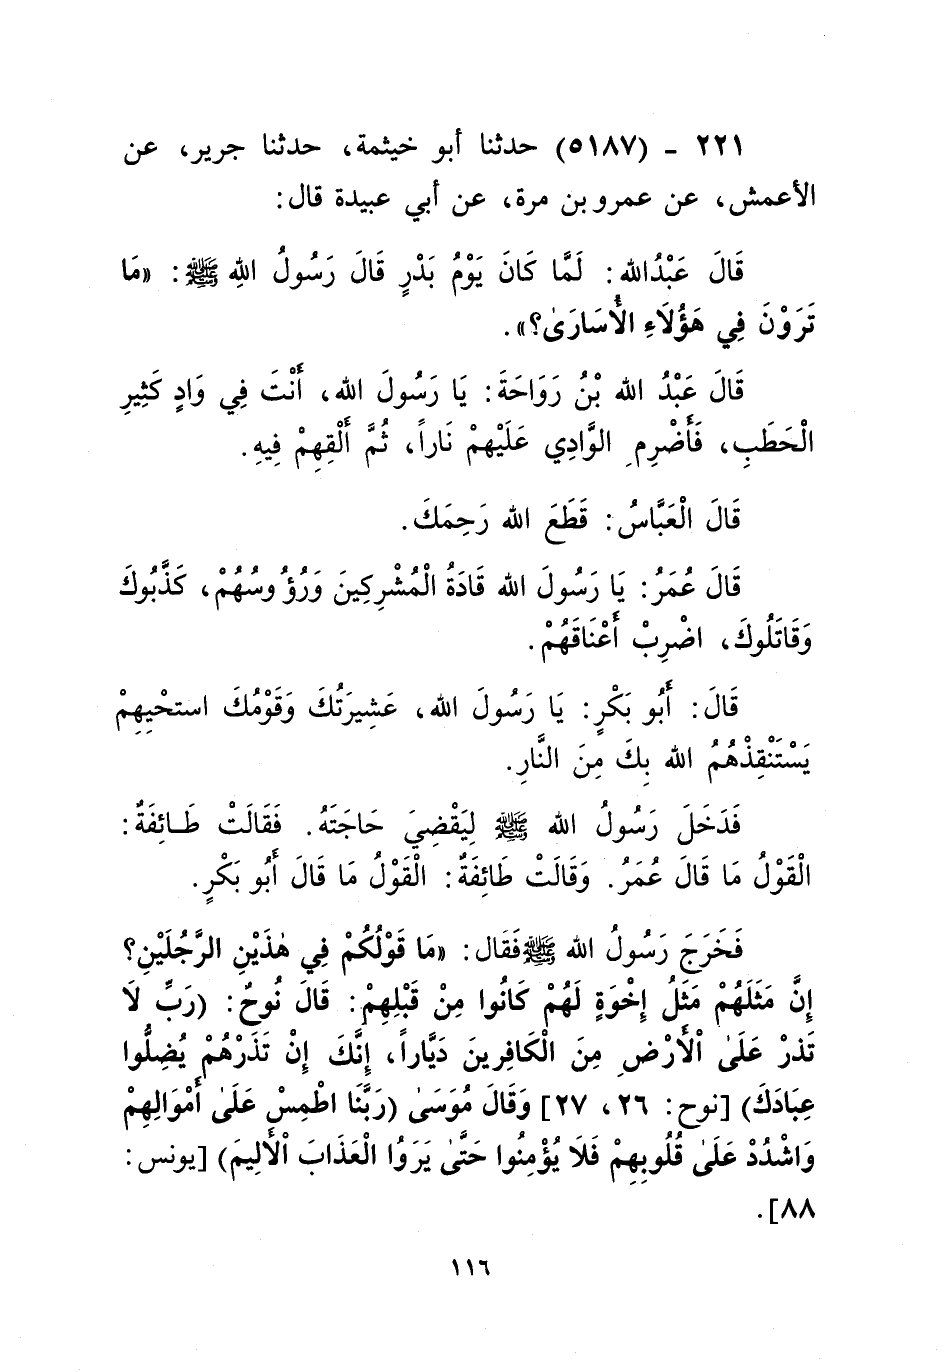 ٢٢١ - (٥١٨٧) حدثنا أبو خيثمة، حدثنا جرير، عن
الأعمش، عن عمرو بن مرة، عن أبي عبيدة قال:
قَالَ عَبْدُالله: لَمَّا كَانَ يَوْمُ بَدْرٍ قَالَ رَسُولُ اللهِ ﷺ: «مَا
تَرَوْنَ فِي هَؤُلَاءِ الأُسَارَىٰ؟».
قَالَ عَبْدُ الله بْنُ رَوَاحَةَ: يَا رَسُولَ الله، أَنْتَ فِي وَادٍ كَثِيرِ
الْحَطَبِ، فَأَضْرِمِ الْوَّادِي عَلَيْهِمْ نَاراً، ثُمَّ أَلْقِهِمْ فِيهِ.
قَالَ الْعَبَّاسُ: قَطَعَ الله رَحِمَكَ.
قَالَ عُمَرُ: يَا رَسُولَ الله قَادَةُ الْمُشْرِكِينَ وَرُؤُوسُهُمْ، كَذَّبُوكَ
وَقَاتَلُوكَ، اضْرِبْ أَعْنَاقَهُمْ.
قَالَ: أَبُو بَكْرٍ: يَا رَسُولَ الله، عَشِيرَتُكَ وَقَوْمُكَ استحْيِهِمْ
يَسْتَنْقِذْهُمُ الله بِكَ مِنَ النَّارِ.
فَدَخَلَ رَسُولُ الله ﷺ لِيَقْضِيَ حَاجَتَهُ. فَقَالَتْ طَائِفَةٌ:
الْقَوْلُ مَا قَالَ عُمَرُ. وَقَالَتْ طَائِفَةٌ: الْقَوْلُ مَا قَالَ أَبُو بَكْرٍ.
فَخَرَجَ رَسُولُ الله ﷺفَقَال: «مَا قَوْلُكُمْ فِي هٰذَيْنِ الرَّجُلَيْنِ؟
إِنَّ مَثَلَهُمْ مَثَلُ إِخْوَةٍ لَهُمْ كَانُوا مِنْ قَبْلِهِمْ: قَالَ نُوحٌ: (رَبِّ لَا
تَذرْ عَلَىٰ الْأَرْضِ مِنَ الْكَافِرِينَ دَيَّاراً، إِنَّكَ إِنْ تَذَرْهُمْ يُضِلُّوا
عِبَادَكَ) [نوح: ٢٦، ٢٧] وَقَالَ مُوَسَىٰ (رَبَّنَا اطْمِسْ عَلَىٰ أَمْوَالِهِمْ
وَاشْدُدْ عَلَىٰ قُلُوبِهِمْ فَلَا يُؤْمِنُوا حَتَّىٰ يَرَوُا الْعَذَابَ الْأَلِيمَ) [يونس:
٨٨].
١١٦